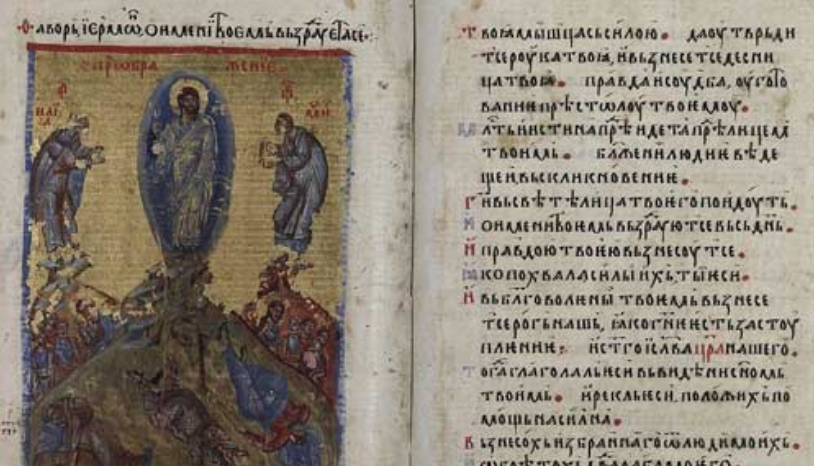 Ѳаворь, і ермѡⷩ, о имени твоемь възрⷣауетасе:
прѣѡбра жение
твоꙗ мышца сь силою. даоутврьди
тсе роука твоꙗ, и възнесетсе десни
ца твоꙗ. правда и соудба, оугото
вание прѣстолоу твоемоу.
Млть и истина прѣидета прѣⷣ лицемь
твоимь. блⷤени людиѥ вѣде
щеи въскликновение.
Ги въ свѣтѣ лица твоего поидоуть.
И о имени твоемь възрⷣауютсе вьсь днь.
И правдою твоею възнесоутсе.
ꙗко похвала силы ихь, ты еси.
И въ блговолены твоемь възнесе
тсе рогь нашь, ꙗко гне есть застоу
пление: и стго іслва цра нашего.
Тогⷣа глагола еси въ видѣни сномь
твоимь. и рекль еси, положихь по
мощь на силна.
Възнесохь избраннаго ѿ людии моихь.